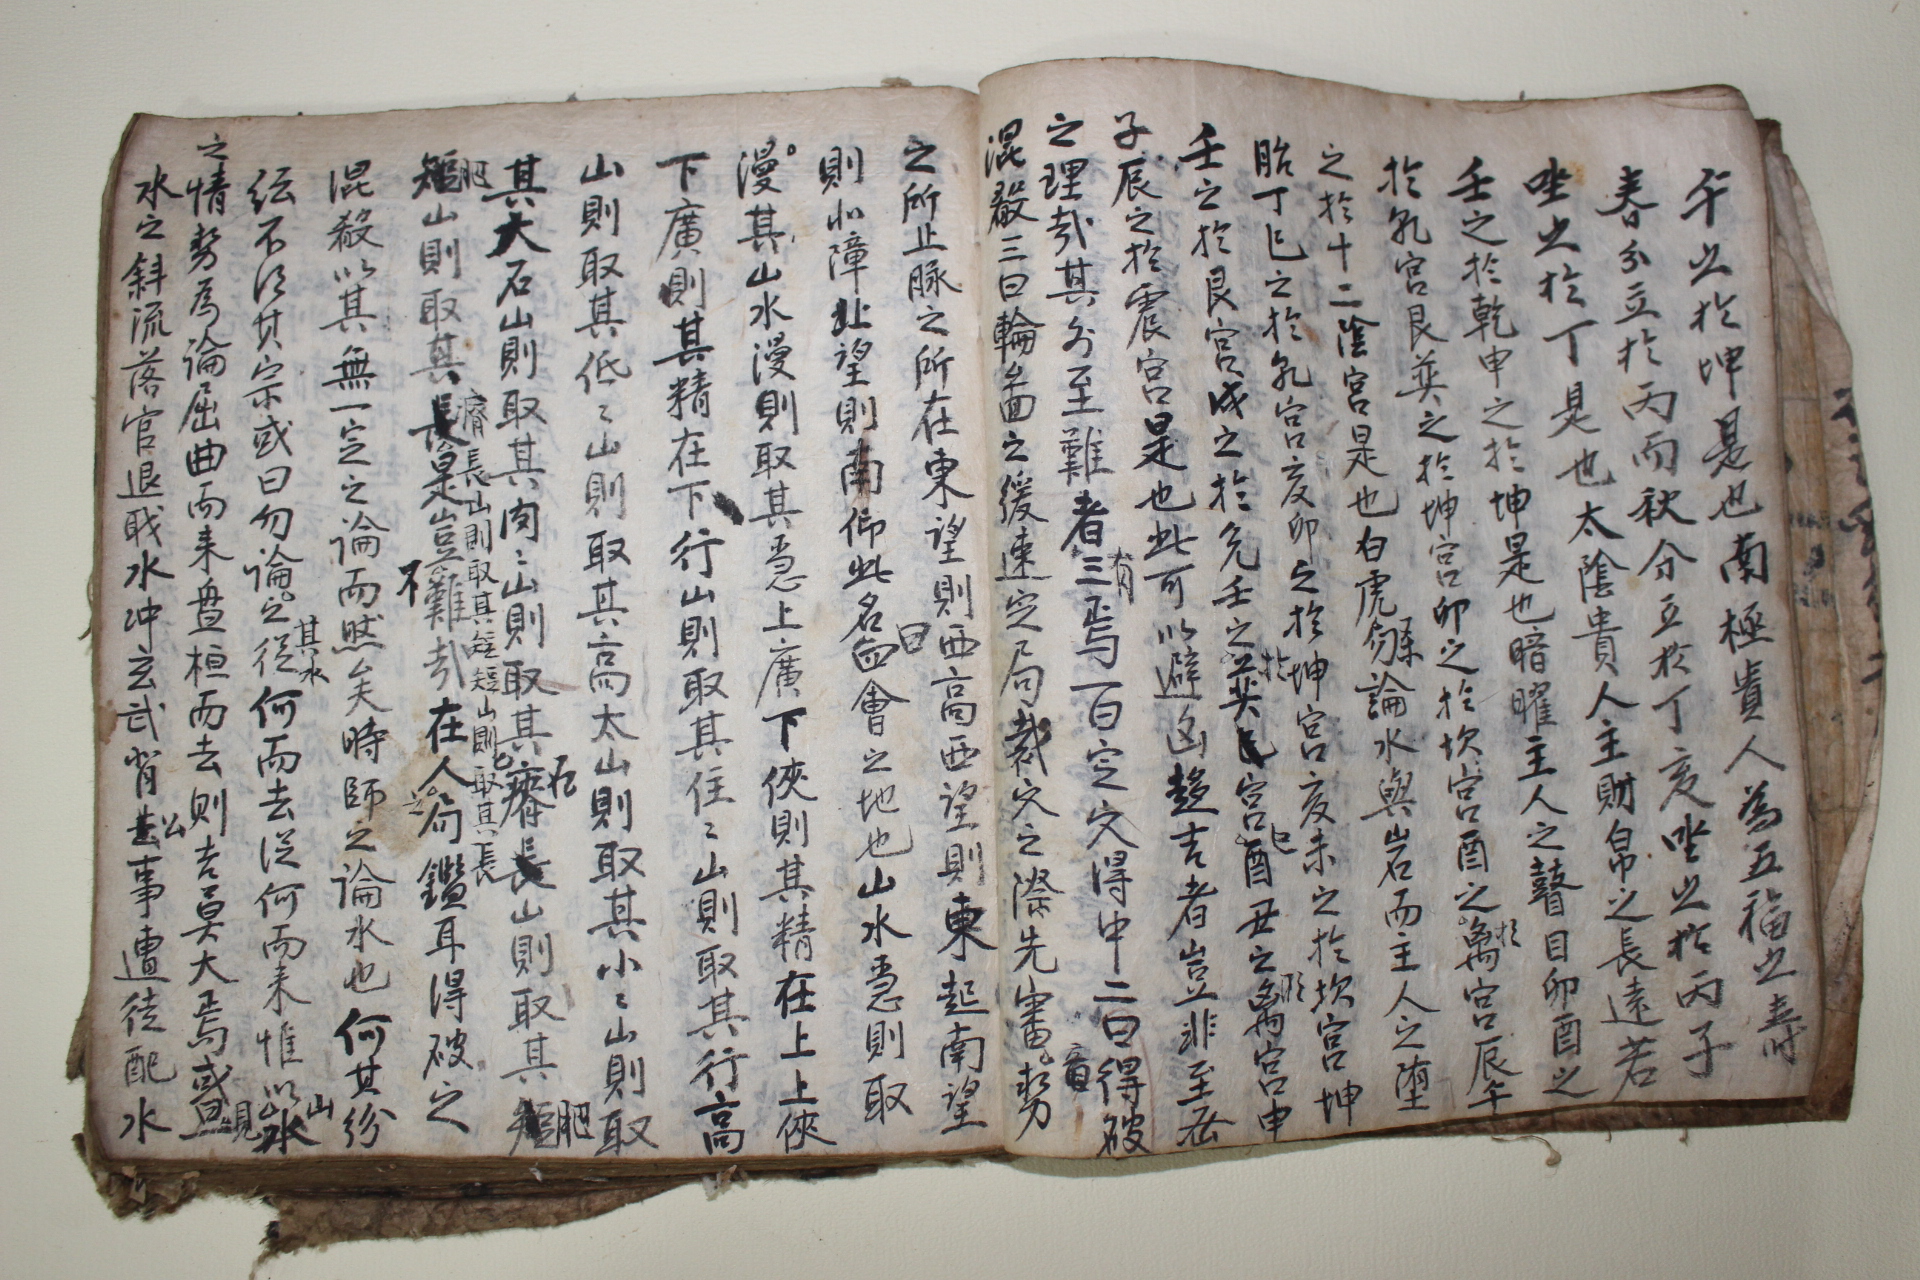 午之於坤是也南極貴人為五福之壽
春分立於丙而秋分立於丁亥坐之於丙子
坐之於丁是也太陰貴人主財帛之長遠若
壬之於乾申之於坤是也暗曜主人之瞽目卯酉之
於乳宮艮巽之於坤宮卯之於坎宮酉之於离宮辰午
之於十二陰宮是也白虎勿論水與岩而主人之堕
胎丁巳之於乳宮亥卯之於坤宮亥未之於坎宮坤
壬之於艮宮戌之於兌壬之於巽巳宮酉丑之於离宮申
子辰之於震宮是也此可以避凶趍吉者豈非至公
之理哉其外至難者有三焉一曰定穴得中二曰得破
混殺三曰輪啚之緩速定局裁穴之際先審龍勢
之所止脉之所在東望則西高西望則東起南望
則北障北望則南仰此名曰四會之地也山水急則取
漫其山水漫則取其急上廣下俠則其精在上上俠
下廣則其精在下行山則取其住住山則取其行高
山則取其低低山則取其高太山則取其小小山則取
其大石山則取其肉肉山則取其石瘠山則取其肥
肥山則取其瘠長山則取其短短山則取其長是豈不難哉在人局鑑耳得破之
混殺以其無一定之論而然矣時師之論水也何其紛
紜不得其宗或曰勿論其水之從何而去從何而来惟以山水
之情勢為論屈曲而来盘桓而去則吉莫大焉或見
水之斜流落官退戝水冲玄武背公事遭徒配水